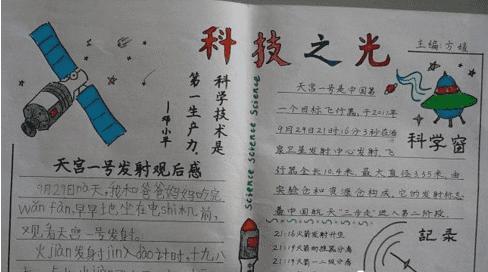 科技之光
主编:方婧
科学技术是
第一生产力.
—邓小平
天宫一号发射观后感
9月29日那天,我和爸爸妈妈吃完
wǎn fàn,早早地坐在电shì机前,
观看天宫一号发射。
火jiàn发射jìn入dào计时,十九八
Science Science Science
天宫一号是中国第
一个目标飞行器,于2011年
9月29日21时16分3秒在酒
泉卫星发射中心发射,飞
行器全长10.4米,最大直径3.35米,由
实验仓和资源仓构成,它的发射标志
着中国航天"三步走"进入第二阶段.
科学窗
记录
21:16火箭发射升空
21:19火箭一二级分离